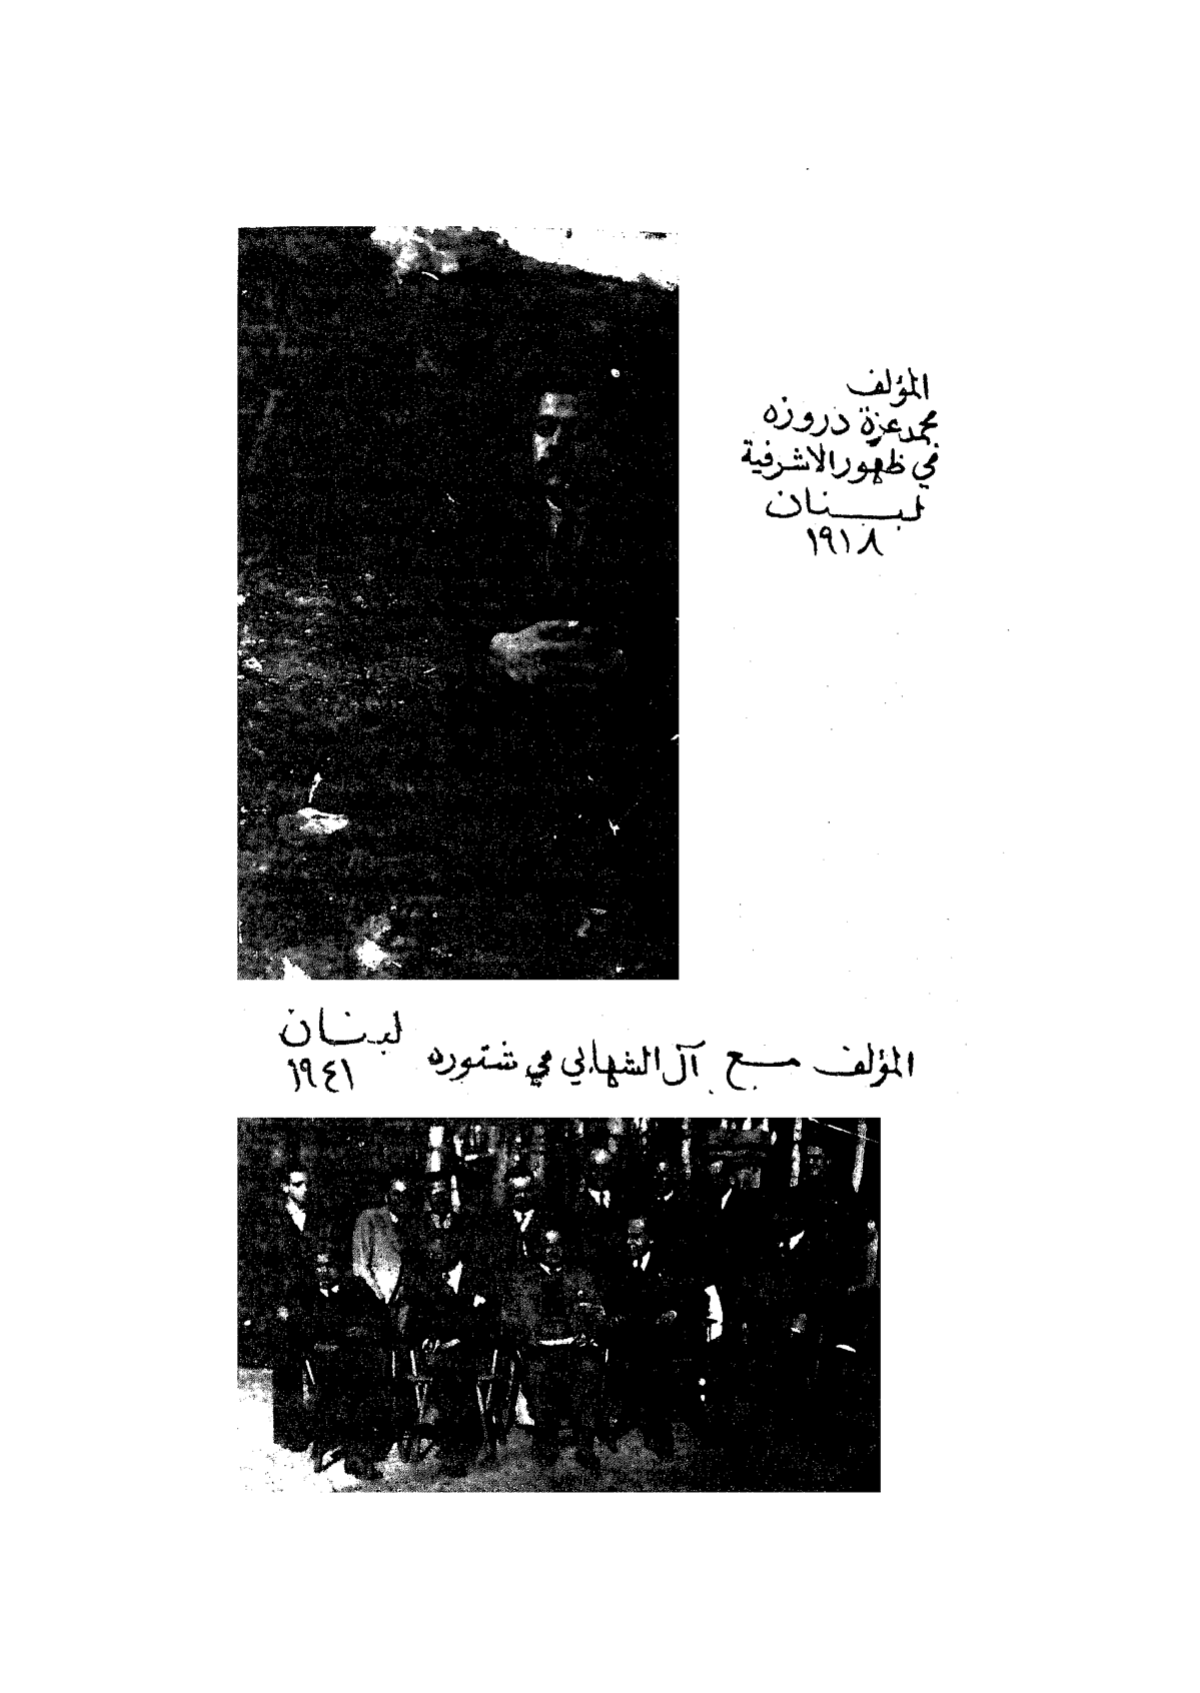 المؤلف
محمد عزة دروزه
في ظهور الاشرفية
لبنان
١٩١٨
المؤلف مع آل الشهابي في شتوره لبنان
١٩٤١